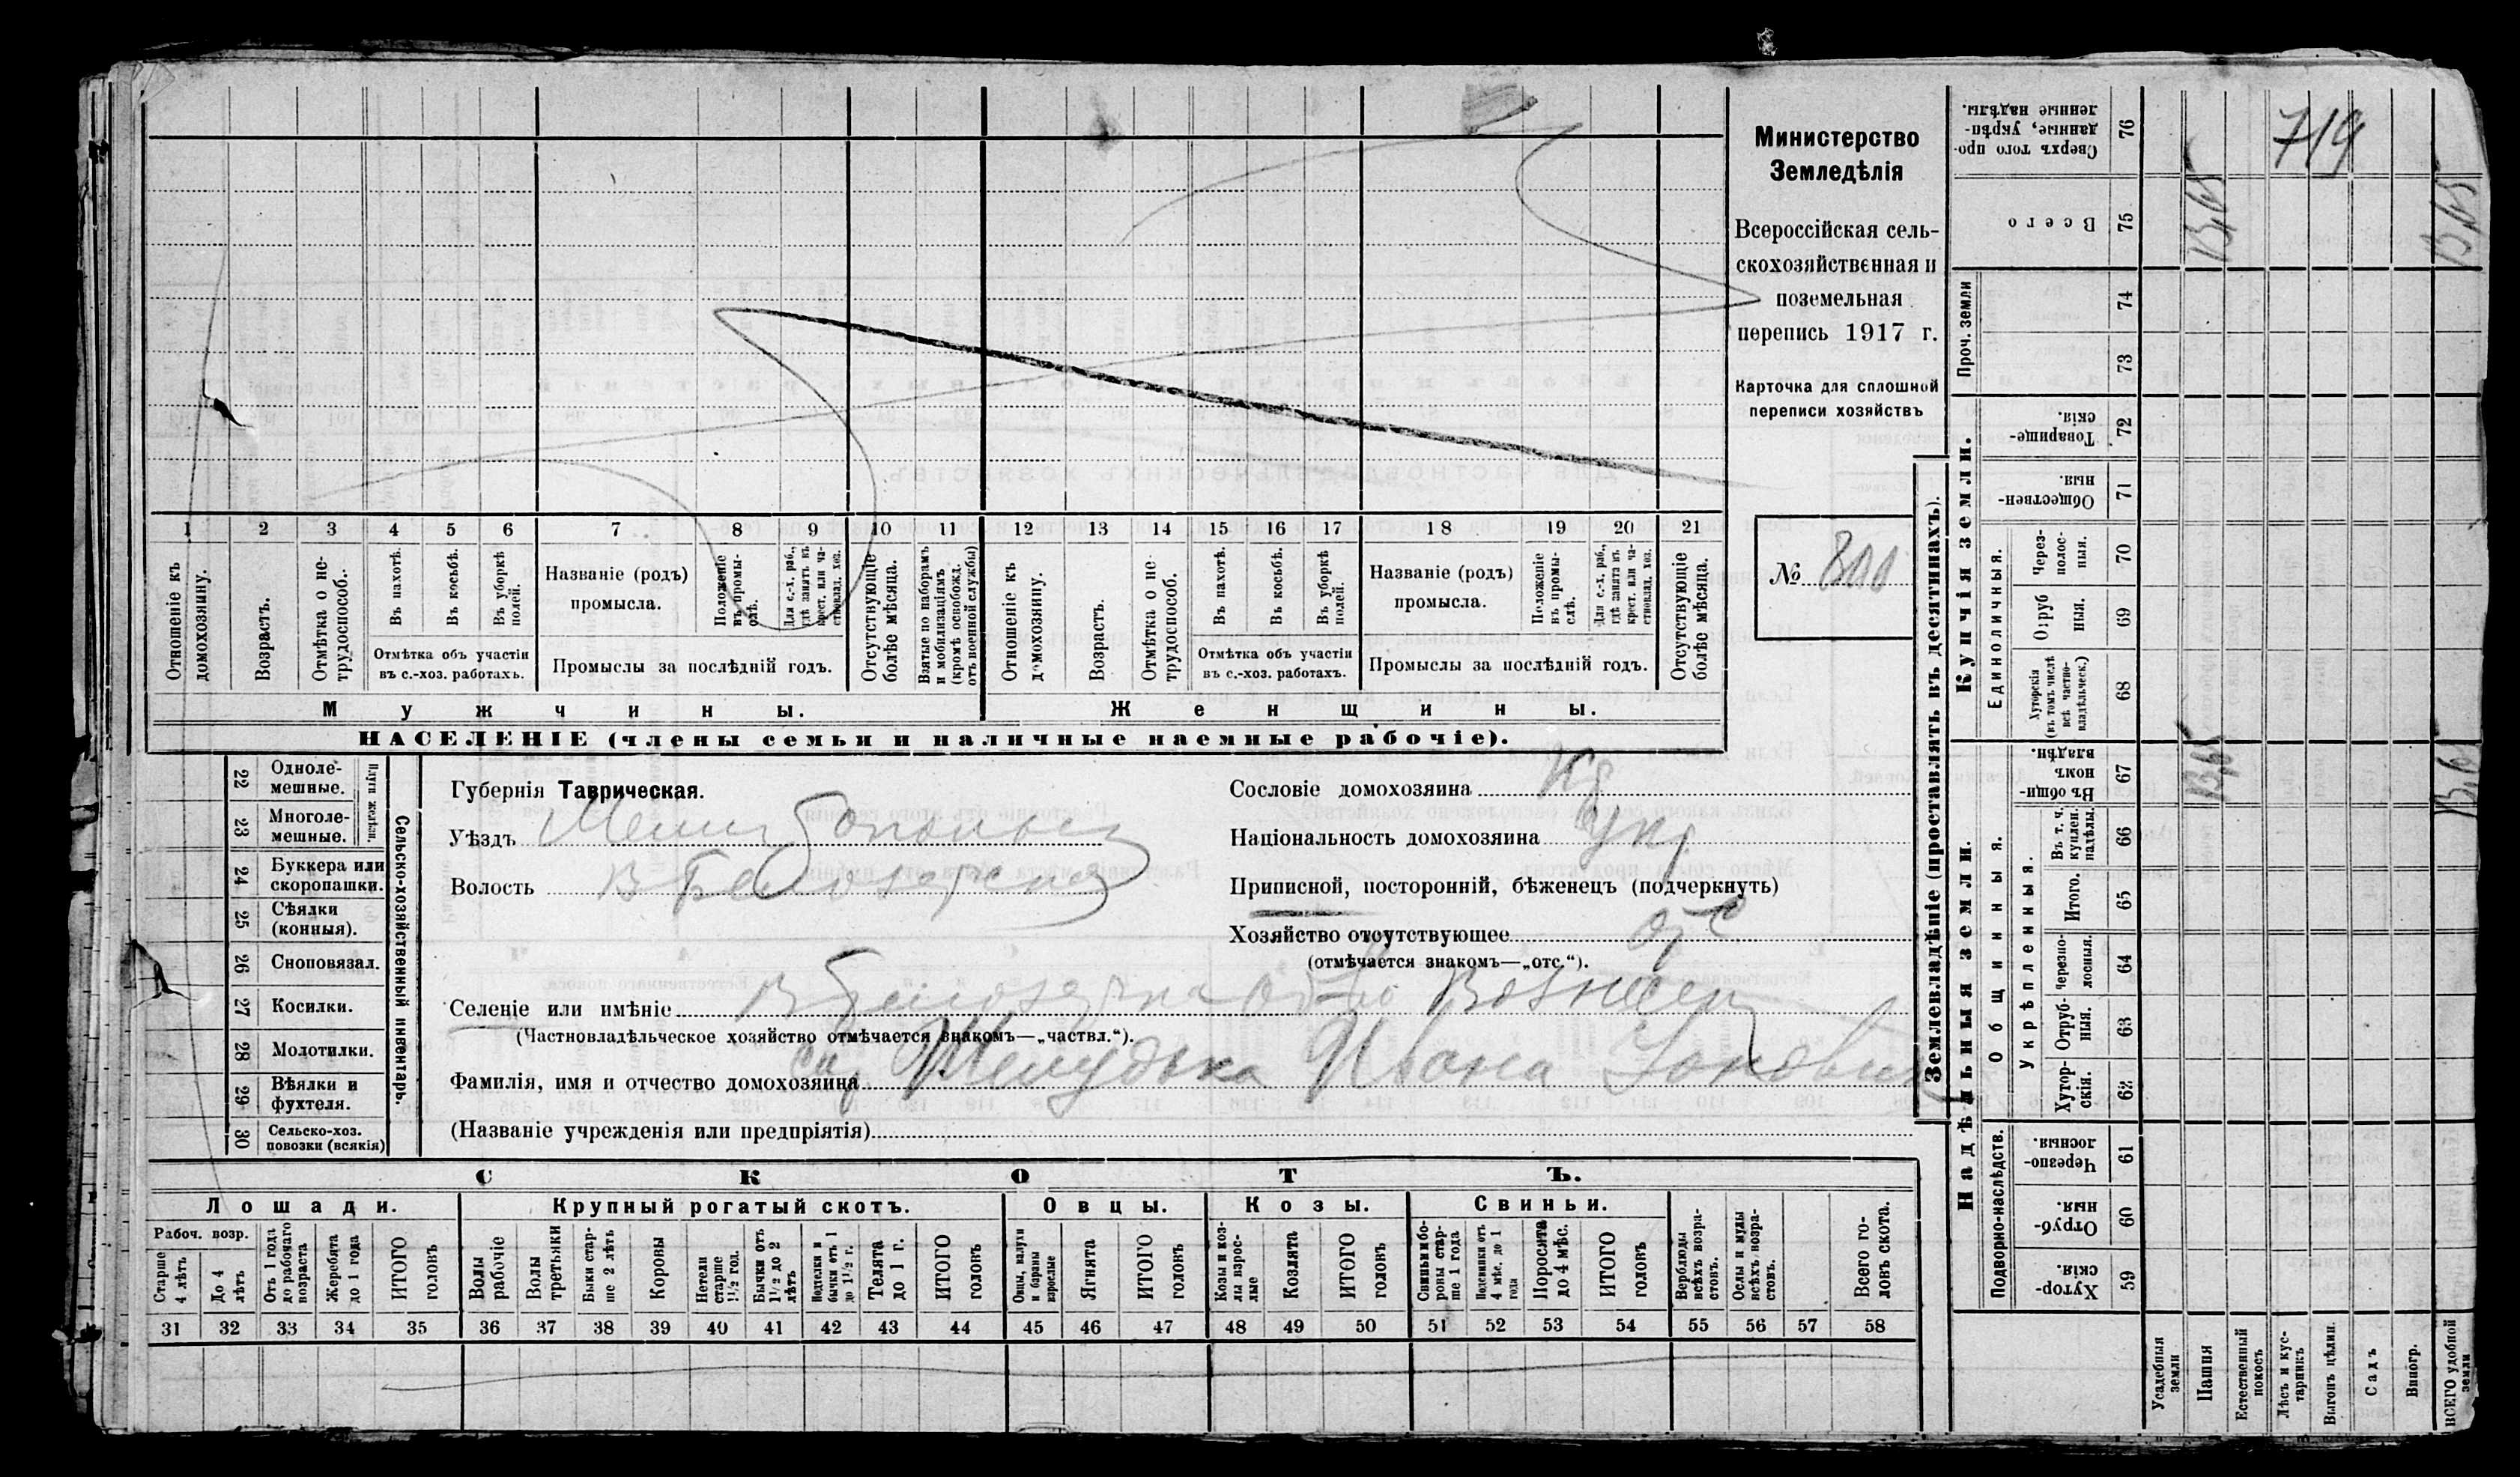 Министерство
Земледѣлія
Всероссійская сель-
скохозяйственная и
поземельная
перепись 1917 г.
Карточка для сплошной
переписи хозяйствъ
№
1 2 3 4 5 6 7 8 9 10 11 12 13 14 15 16 17 18 19 20 21
Отношеніе къ домохозяину.
Возрастъ.
Отмѣтка о не-трудоспособ.
Въ пахотѣ.
Въ косьбѣ.
Въ уборкѣ полей.
Названіе (родъ) промысла.
Положеніе въ промы-слѣ.
Для с.-х. раб., гдѣ занятъ въ крест. или ча-стновлад. хоз.
Отсутствующіе болѣе мѣсяца.
Взятые по наборамъ и мобилизаціямъ (кромѣ освобожд. отъ военной службы)
Отношеніе къ домохозяину.
Возрастъ.
Отмѣтка о не-трудоспособ.
Въ пахотѣ.
Въ косьбѣ.
Въ уборкѣ полей.
Названіе (родъ) промысла.
Положеніе въ промы-слѣ.
Для с.-х. раб., гдѣ занята въ крест. или ча-стновлад. хоз.
Отсутствующіе болѣе мѣсяца.
Отмѣтка объ участіи въ с.-хоз. работахъ.
Промыслы за послѣдній годъ.
Отмѣтка объ участіи въ с.-хоз. работахъ.
Промыслы за послѣдній годъ.
Мужчины.
Женщины.
НАСЕЛЕНІЕ (члены семьи и наличные наемные рабочіе).
22 Одноле-мешные.
23 Многоле-мешные.
24 Буккера или скоропашки.
25 Сѣялки (конныя).
26 Сноповязал.
27 Косилки.
28 Молотилки.
29 Вѣялки и фухтеля.
30 Сельско-хоз. повозки (всякія)
Сельско-хозяйственный инвентарь.
Губернія Таврическая.
Уѣздъ Мелитопольск
Волость В Белозерка
Сословіе домохозяина Кр
Національность домохозяина Укр
Приписной, посторонній, бѣженецъ (подчеркнуть)
Хозяйство отсутствующее отс
(отмѣчается знакомъ—„отс.“).
Селеніе или имѣніе В Белозерка
(Частновладѣльческое хозяйство отмѣчается знакомъ—„частвл.“).
Фамилія, имя и отчество домохозяина Ивана
(Названіе учрежденія или предпріятія)
СКОТЪ.
Лошади.
Крупный рогатый скотъ.
Овцы.
Козы.
Свиньи.
Рабоч. возр.
Старше 4 лѣтъ
До 4 лѣтъ
Отъ 1 года до рабочаго возраста
Жеребята до 1 года
ИТОГО головъ
Волы рабочіе
Волы третьяки
Быки стар-ше 2 лѣтъ
Коровы
Нетели старше 1½ год.
Бычки отъ 1½ до 2 лѣтъ
Подтелки и бычки отъ 1 до 1½ г.
Телята до 1 г.
ИТОГО головъ
Овцы, валухи и бараны взрослые
Ягнята
ИТОГО головъ
Козы и коз-лы взрос-лые
Козлята
ИТОГО головъ
Свиньи и бо-ровы стар-ше 1 года
Подсвинки отъ 4 мѣс. до 1 года
Поросята до 4 мѣс.
ИТОГО головъ
Верблюды всѣхъ возра-стовъ.
Ослы и мулы всѣхъ возра-стовъ.
Всего го-ловъ скота.
31 32 33 34 35 36 37 38 39 40 41 42 43 44 45 46 47 48 49 50 51 52 53 54 55 56 57 58
Землевладѣніе (проставлять въ десятинахъ).
Надѣльныя земли.
Купчія земли.
Проч. земли
Подворно-наслѣдств.
Общинныя.
Укрѣпленныя.
Единоличныя.
76 Сверхъ того про-данные, укрѣп-ленные надѣлы.
75 Всего
74
73
72 Товарище-скія.
71 Обществен-ныя.
70 Через-полос-ныя.
69 Отруб-ныя.
68 Хуторскія (въ томъ числѣ всѣ частно-владѣльческ.)
67 Въ общин-номъ владѣн.
66 Въ т. ч. куплен. надѣлы.
65 Итого.
64 Черезпо-лосныя.
63 Отруб-ныя.
62 Хутор-скія.
61 Черезпо-лосныя.
60 Отруб-ныя.
59 Хутор-скія.
Усадебныя земли
Пашня
Естественный покосъ
Лѣсъ и кус-тарникъ
Выгонъ цѣлин.
Садъ
Виногр.
ВСЕГО удобной земли
719